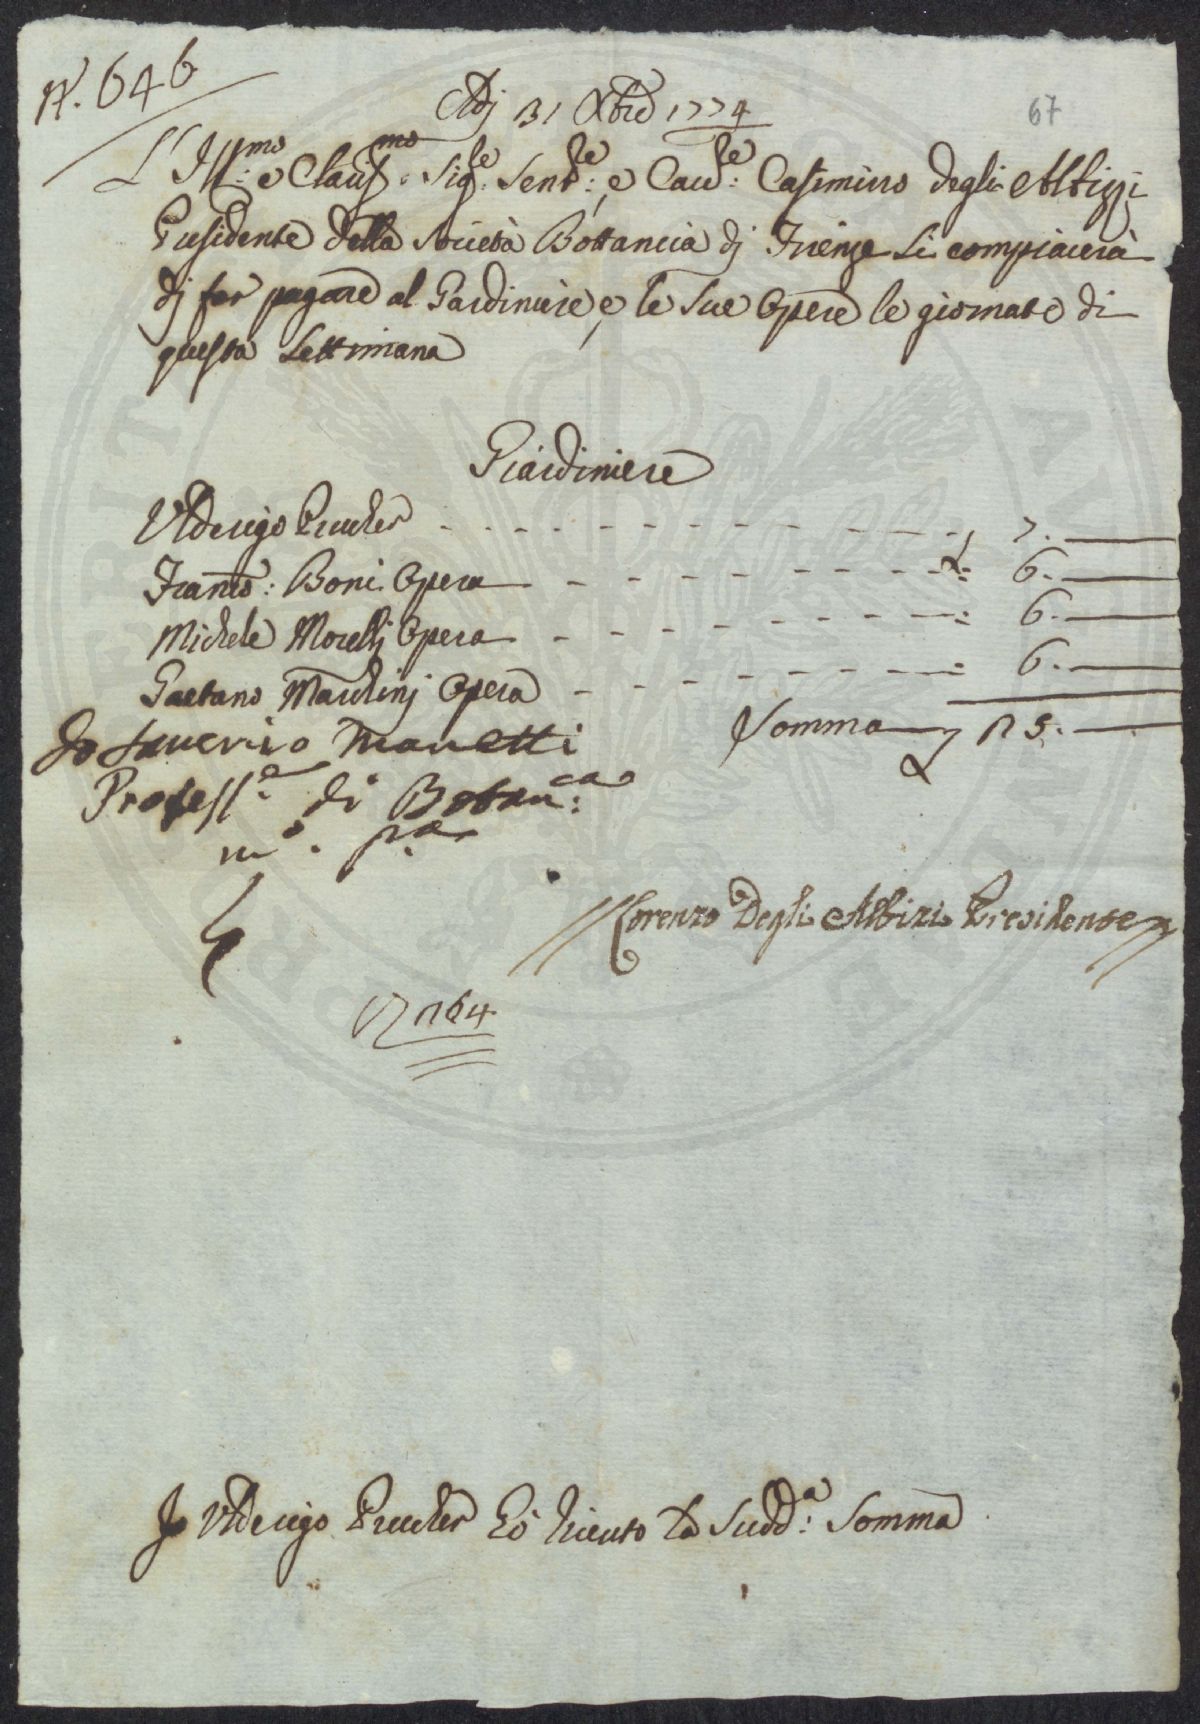 N. 646
Adj 31 Xbre 1774
67
L'Ill:mo e Claris:mo Sig:re Sent:re, e Cav:re Casimirro degli Albizzi
Presidente della Società Bottanica dj Firenze Si compiacerà
dj far pagare al Gardiniere, e le Sue Opere le giornate di
questa Settimana
Giardiniere
Vlderigo Prucher 7.
Franco: Boni Opera 6.
Michele Morellj Opera 6.
Gaetano Marchinj Opera 6.
Somma 25.
Jo Saverio Manetti
Profess:e di Botan:ca
m.o p.a
Lorenzo Degli Albizi Presidente
1764
Jo Vlderigo Prucher hò riceuto la Sudd:a Somma